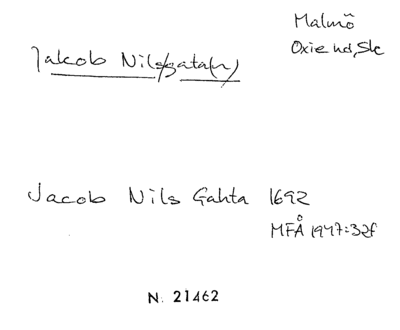 Malmö
Oxie hd, Sk
Jakob Nilsgata(n)
Jacob Nils Gahta 1692
MFÅ 1947:32f
N. 21462